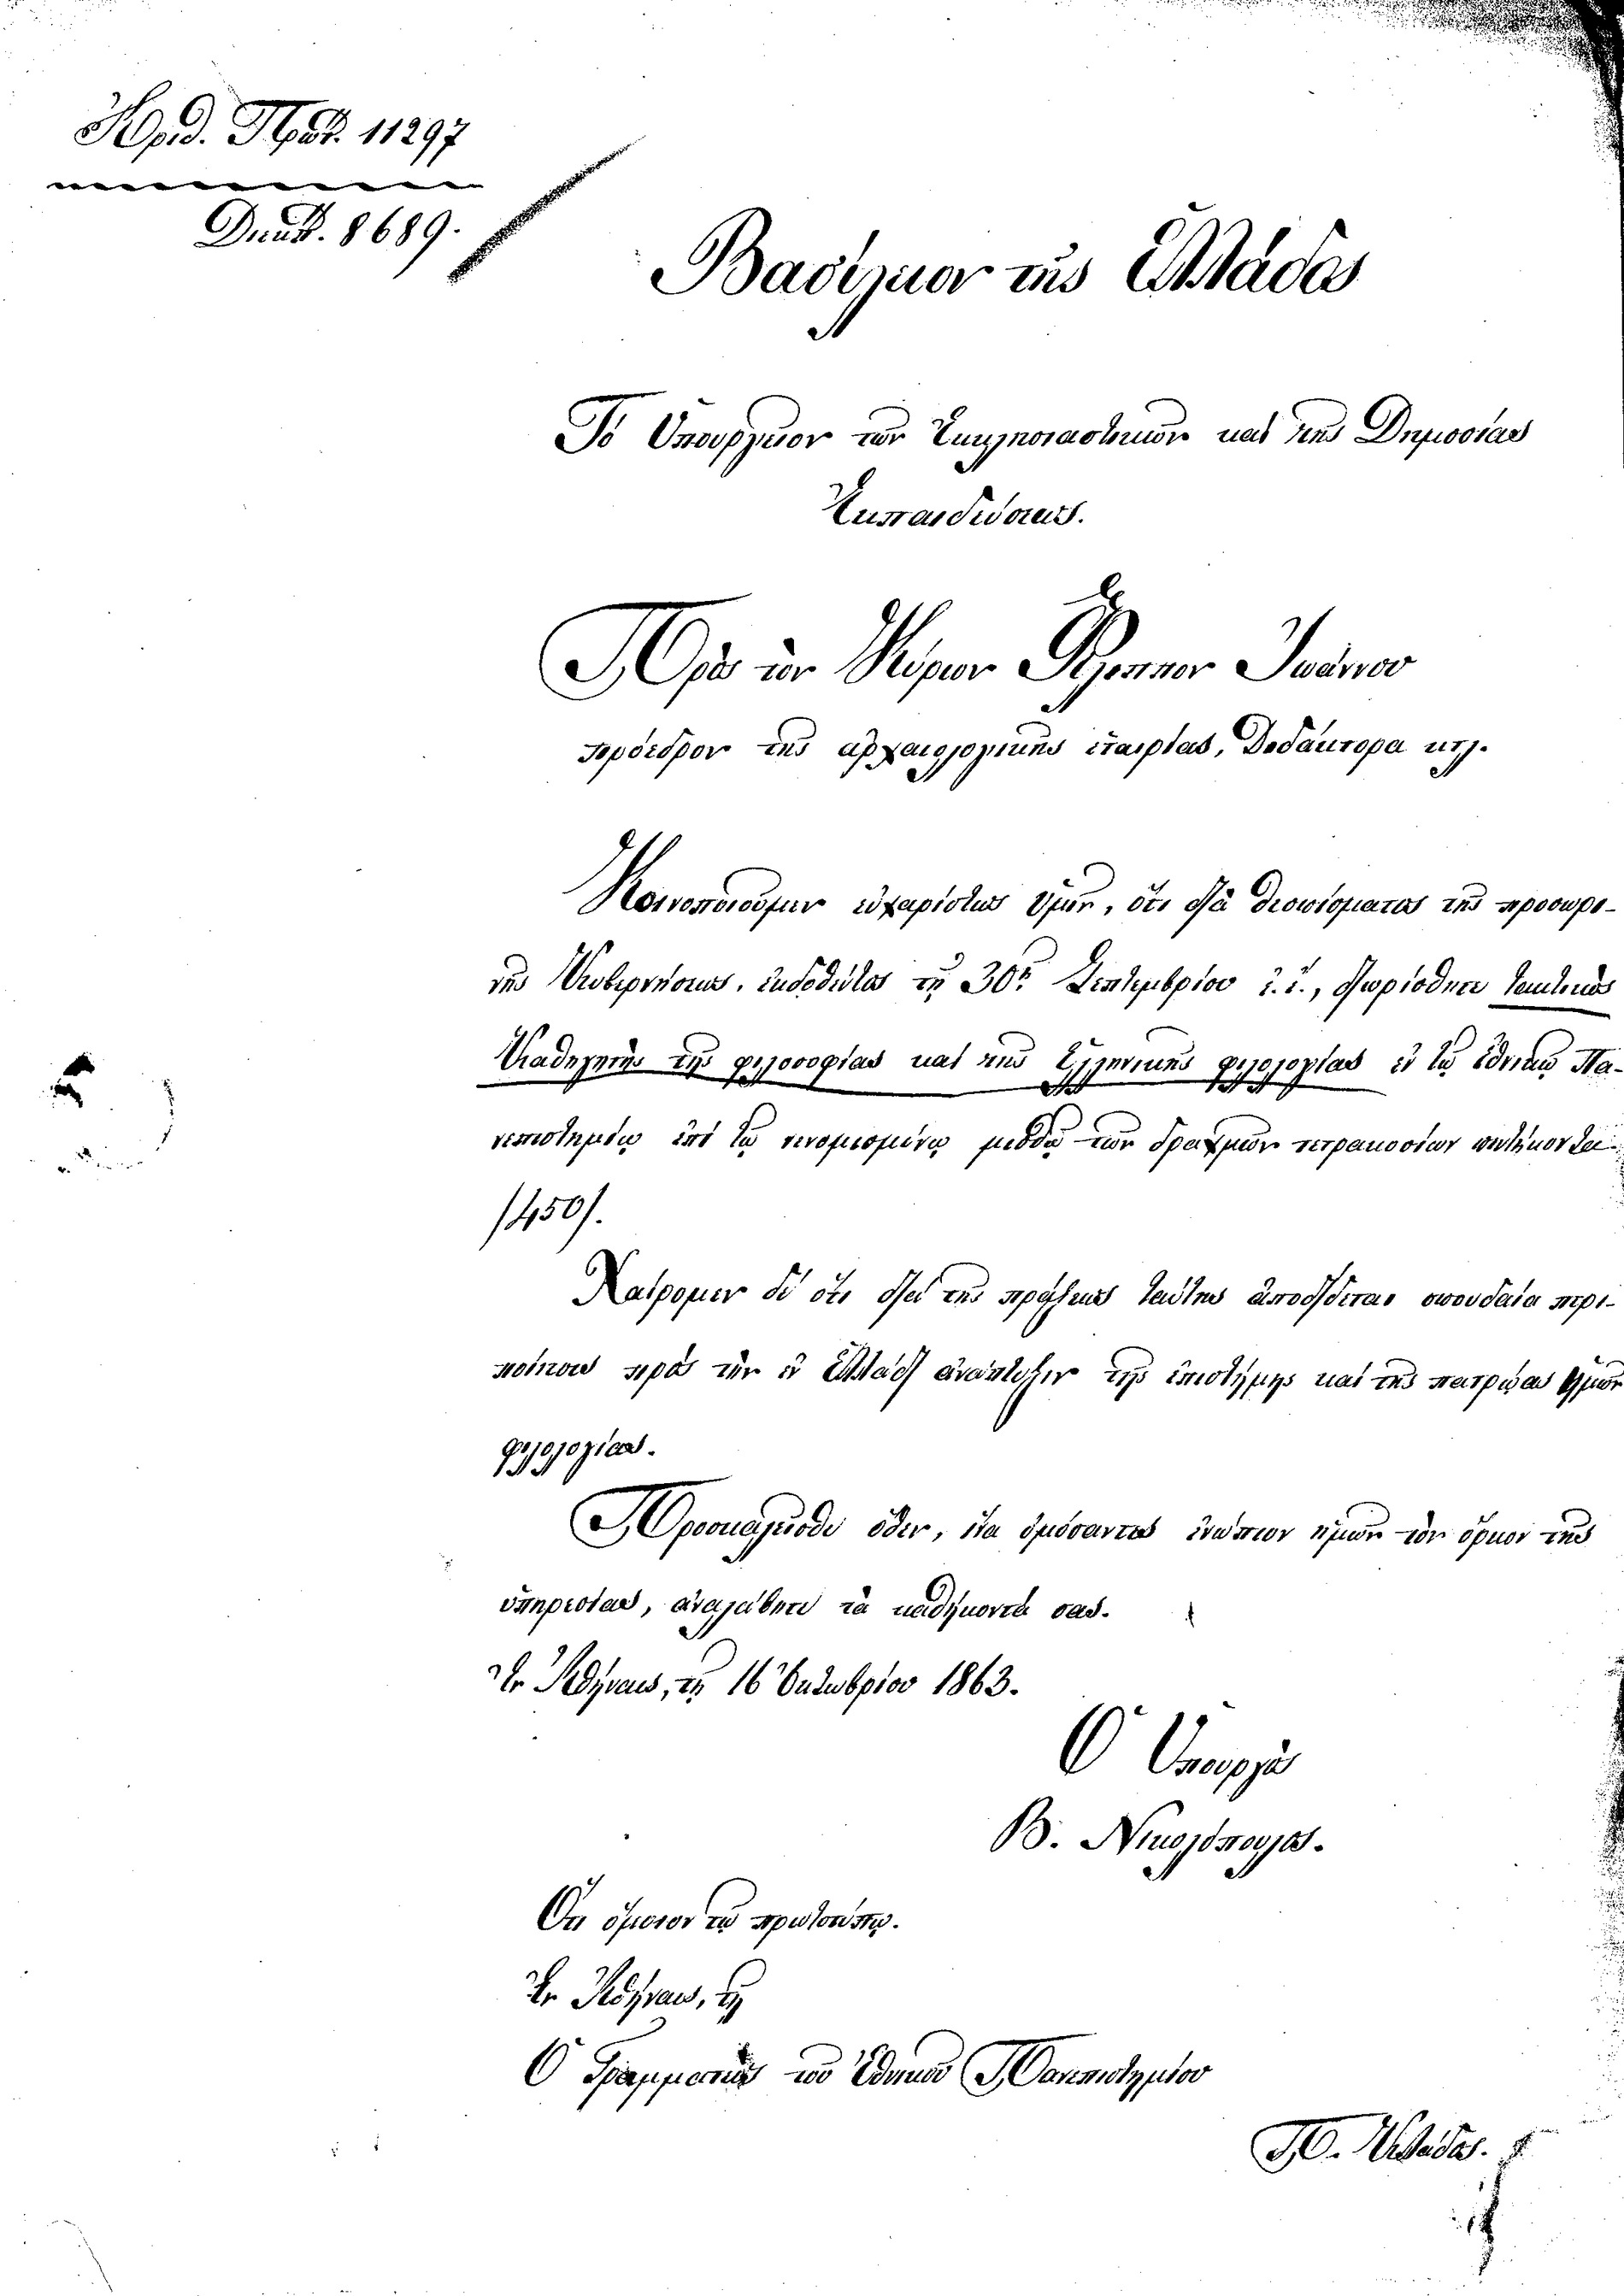 Ἀριθ. Πρωτ. 11297
Διεκπ. 8689.
Βασίλειον τῆς Ἑλλάδος
Τὸ Ὑπουργεῖον τῶν Ἐκκλησιαστικῶν καὶ τῆς Δημοσίας
Ἐκπαιδεύσεως.
Πρὸς τὸν Κύριον Ἰωάννου
πρόεδρον τῆς ἀρχαιολογικῆς ἑταιρίας, Διδάκτορα κτλ.
Κοινοποιοῦμεν εὐχαρίστως ὑμῖν, ὅτι διὰ διοωίσματος τῆς προσωρι-
νῆς Κυβερνήσεως, ἐκδοθέντος τῇ 30ῇ Σεπτεμβρίου ἐ.ἔ., διωρίσθητε τακτικὸς
Καθηγητὴς τῆς φιλοσοφίας καὶ τῆς Ἑλληνικῆς φιλολογίας ἐν τῷ ἐθνικῷ Πα-
νεπιστημίῳ ἐπὶ τῷ νενομισμένῳ μισθῷ τῶν δραχμῶν τετρακοσίων πεντήκοντα
/450/.
Χαίρομεν δὲ ὅτι διὰ τῆς πράξεως ταύτης ἀποδίδοται σπουδαία περι-
ποίησις πρὸς τὴν ἐν Ἑλλάδι ἀνάπτυξιν τῆς ἐπιστήμης καὶ τῆς πατρῴας ἡμῶν
φιλολογίας.
Προσκαλεῖσθε ὅθεν, ἵνα ὀμόσαντες ἐνώπιον ἡμῶν τὸν ὅρκον τῆς
ὑπηρεσίας, ἀναλάβητε τὰ καθήκοντά σας.
Ἐν Ἀθήναις, τῇ 16 Ὀκτωβρίου 1863.
Ὁ Ὑπουργὸς
Β. Νικολόπουλος.
Ὅτι ὅμοιον τῷ πρωτοτύπῳ.
Ἐν Ἀθήναις, τῇ
Ὁ Γραμματεὺς τοῦ Ἐθνικοῦ Πανεπιστημίου